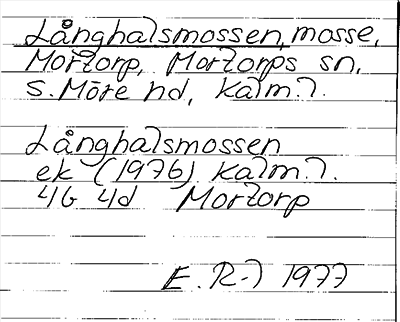 Långhalsmossen, mosse,
Mortorp, Mortorps sn,
S. Möre hd, Kalm. l.
Långhalsmossen
ek (1976) Kalm. l.
4G 4d Mortorp
E. R-) 1977